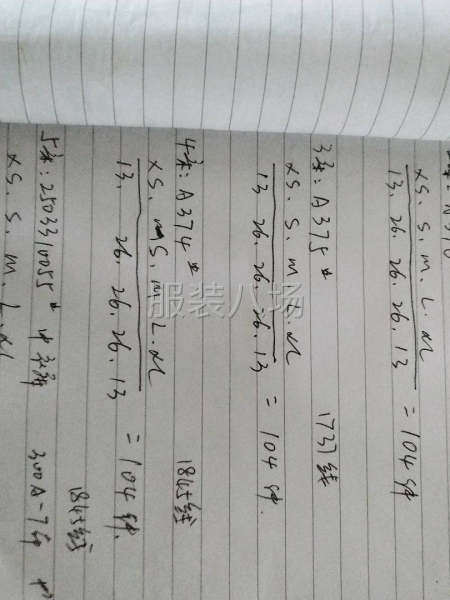 XS. S. M. L. XL
13. 26. 26. 26. 13 = 104件
3款: A375#
1737线
XS. S. M. L. XL
13. 26. 26. 26. 13 = 104件.
4款: A374#
1845线
XS. S. M. L. XL
13. 26. 26. 26. 13 = 104件.
1845线
5款: 2503310055#
300A-7
XS. S. M. L. XL
服装八场